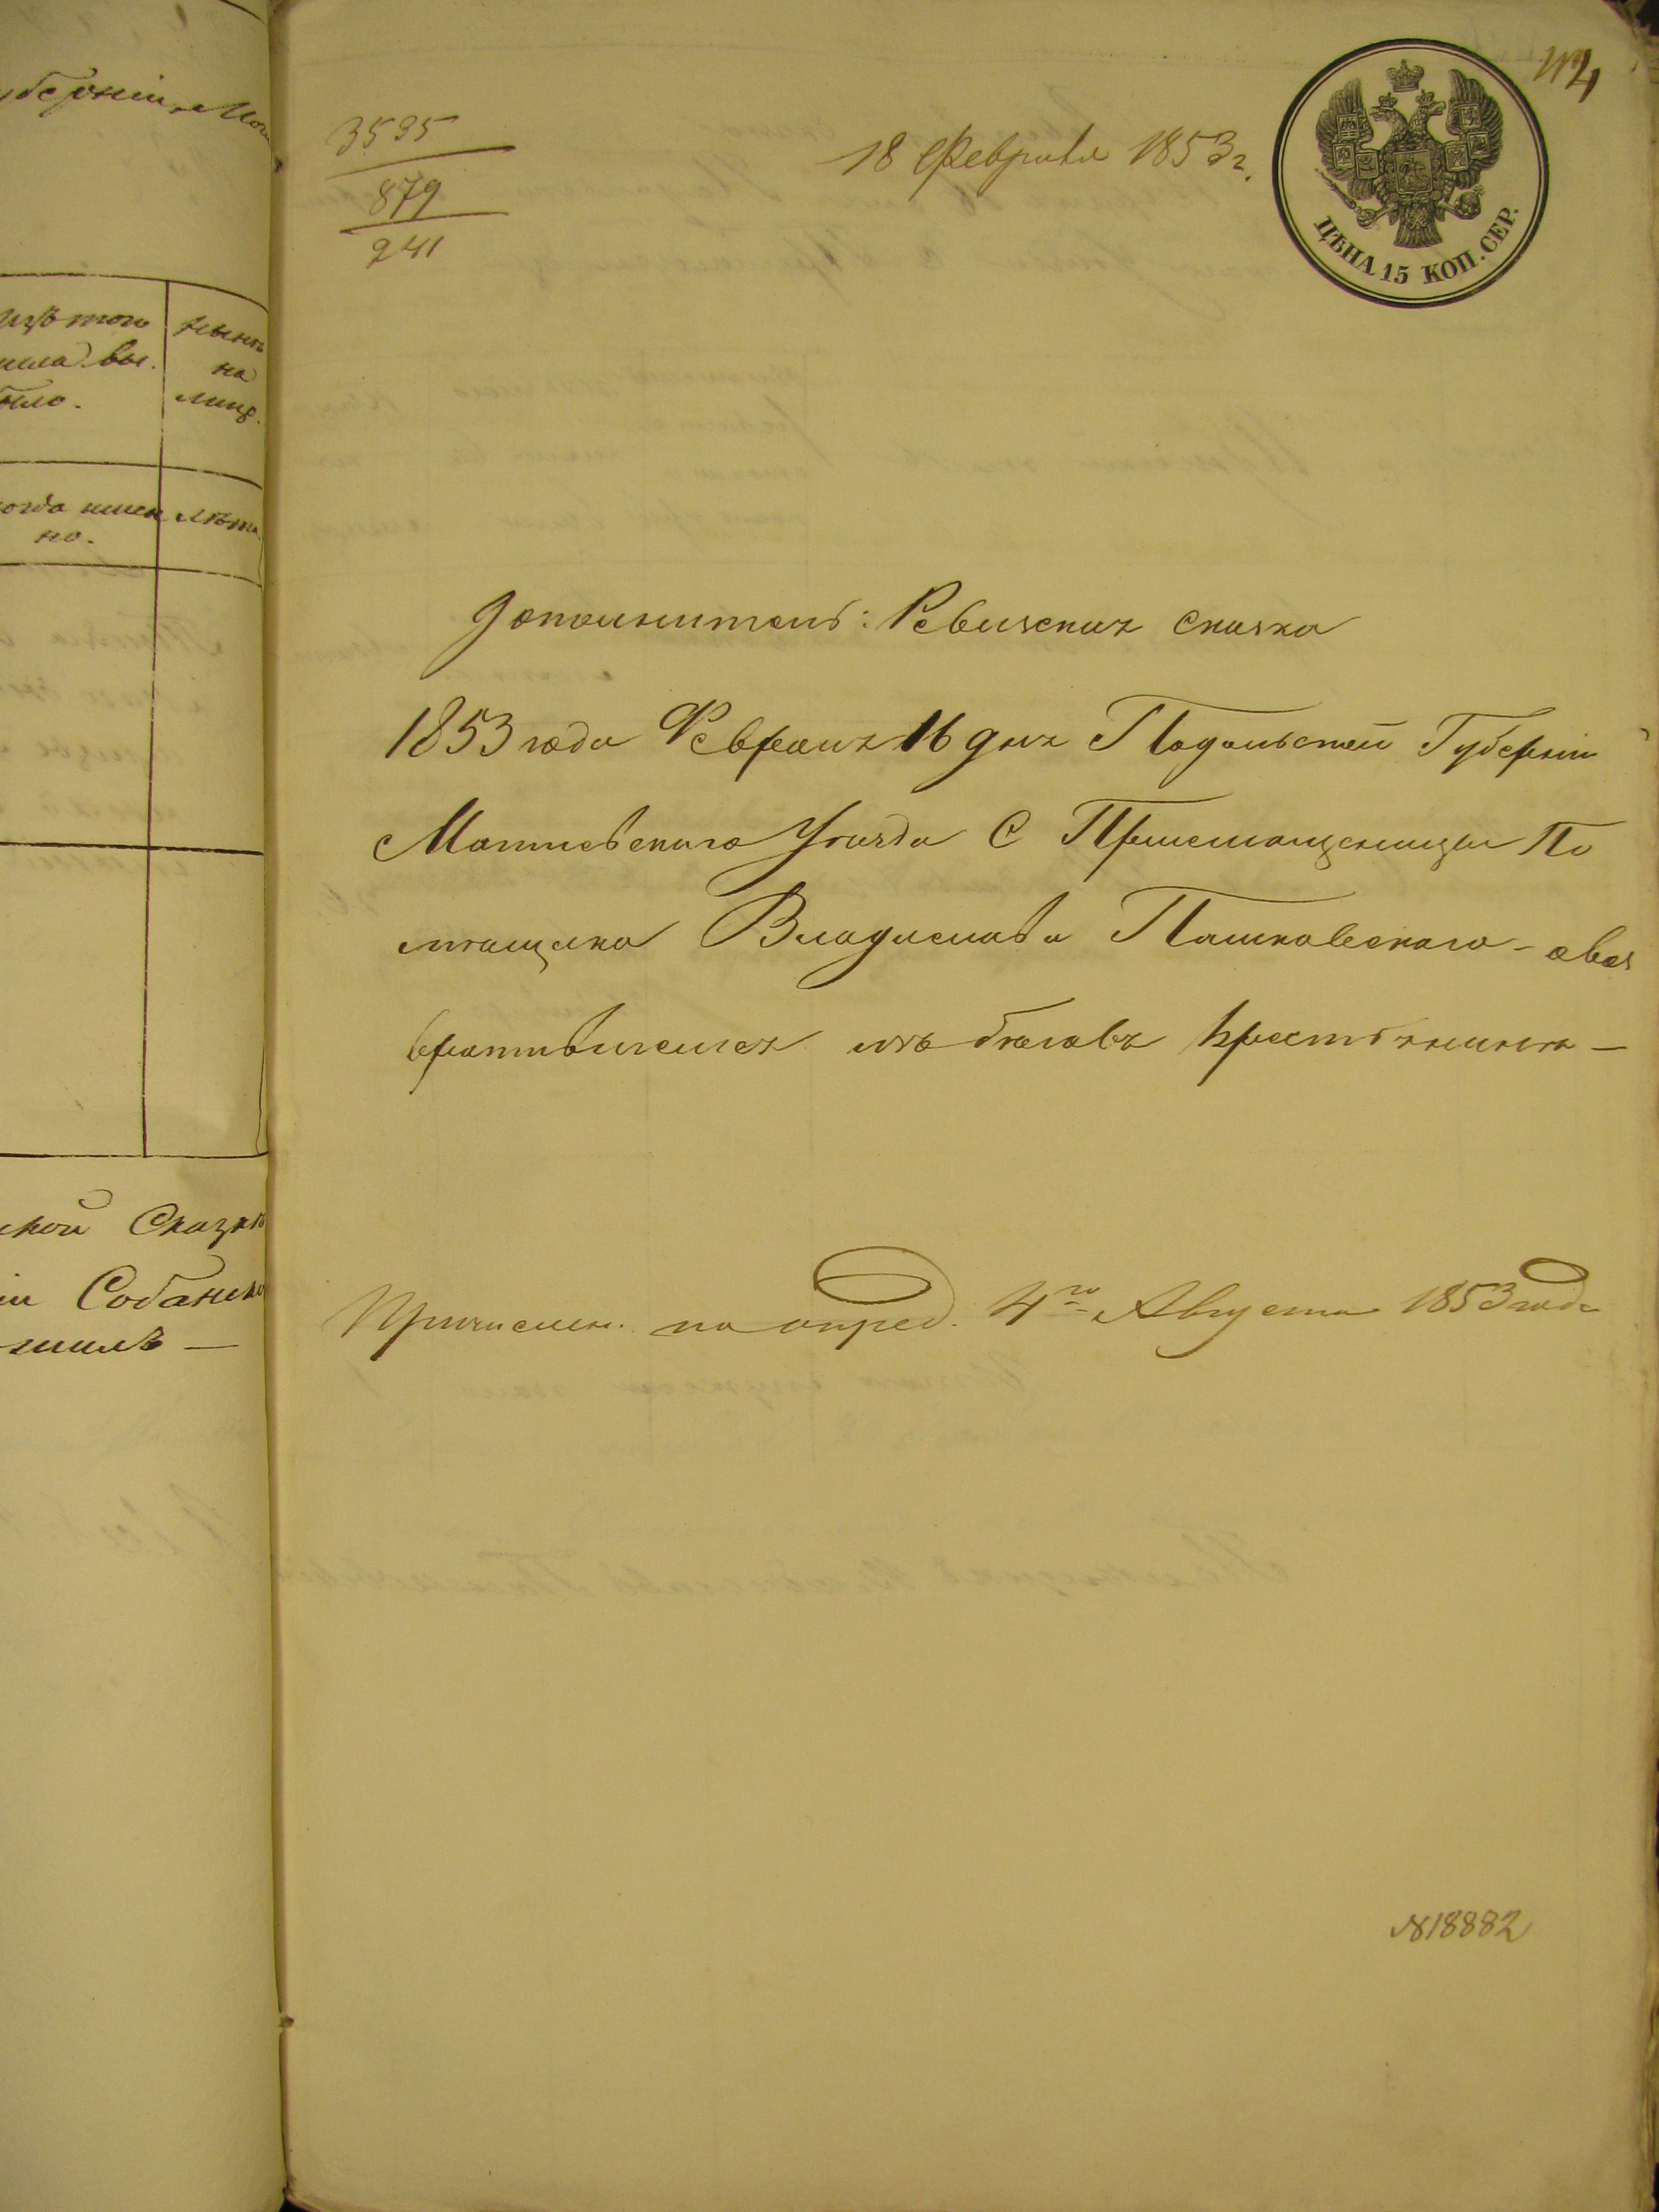 уберніи, Мог
изъ того
числа вы-
было.
Нынѣ
на
лицо.
когда имен
но.
Лѣта
ской Сказкѣ
Собанско
3595
879
241
18 Февраля 1853 г.
ЦѢНА 15 КОП. СЕР.
Дополнитель: Ревизская сказка
1853 года Февраля 16 дня Подольской Губерніи
Могилевскаго Уѣзда С По
мѣщика Владислава Пашковскаго - овоз
вратившемся изъ бѣговъ крестьянинѣ —
Причислен. по опред. 4го Августа 1853 года
№18882